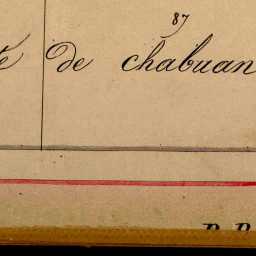 87
de chabuan